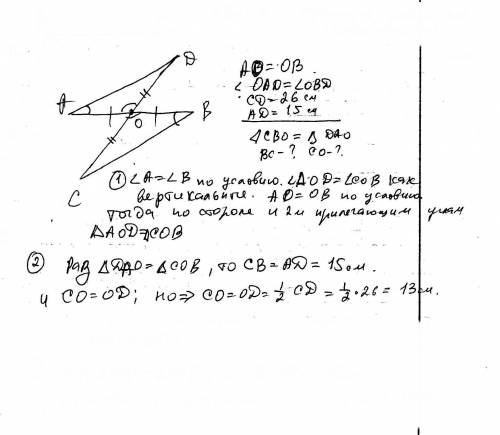 D
A
B
O
C
AO = OB
∠ OAD = ∠OBD
CD = 26 см
AD = 15 см
△CBO = △ DAO
BC - ? CO - ?
① ∠A = ∠B по условию. ∠AOD = ∠COB как
вертикальные. AO = OB по условию
тогда по стороне и 2м прилегающим углам
△AOD = △COB
② Раз △DAO = △COB, то CB = AD = 15 см.
и CO = OD; но ⇒ CO = OD = 1/2 CD = 1/2 • 26 = 13 см.